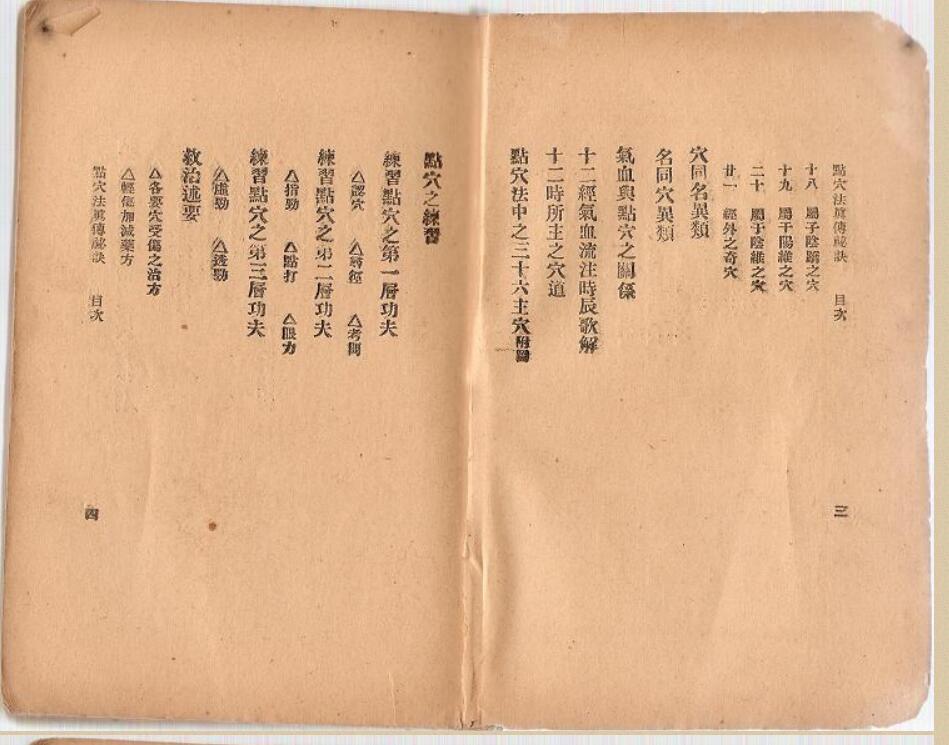 點穴法真傳祕訣 目次
十八 屬于陰蹻之穴
十九 屬于陽維之穴
二十 屬于陰維之穴
廿一 經外之奇穴
穴同名異類
名同穴異類
氣血與點穴之關係
十二經氣血流注時辰歌解
十二時所主之穴道
點穴法中之三十六主穴附圖
三
點穴之練習
練習點穴之第一層功夫
△認穴 △尋經 △考問
練習點穴之第二層功夫
△指勁 △點打 △眼力
練習點穴之第三層功夫
△虛勁 △透勁
救治述要
△各要穴受傷之治方
△輕傷加減藥方
點穴法真傳祕訣 目次
四